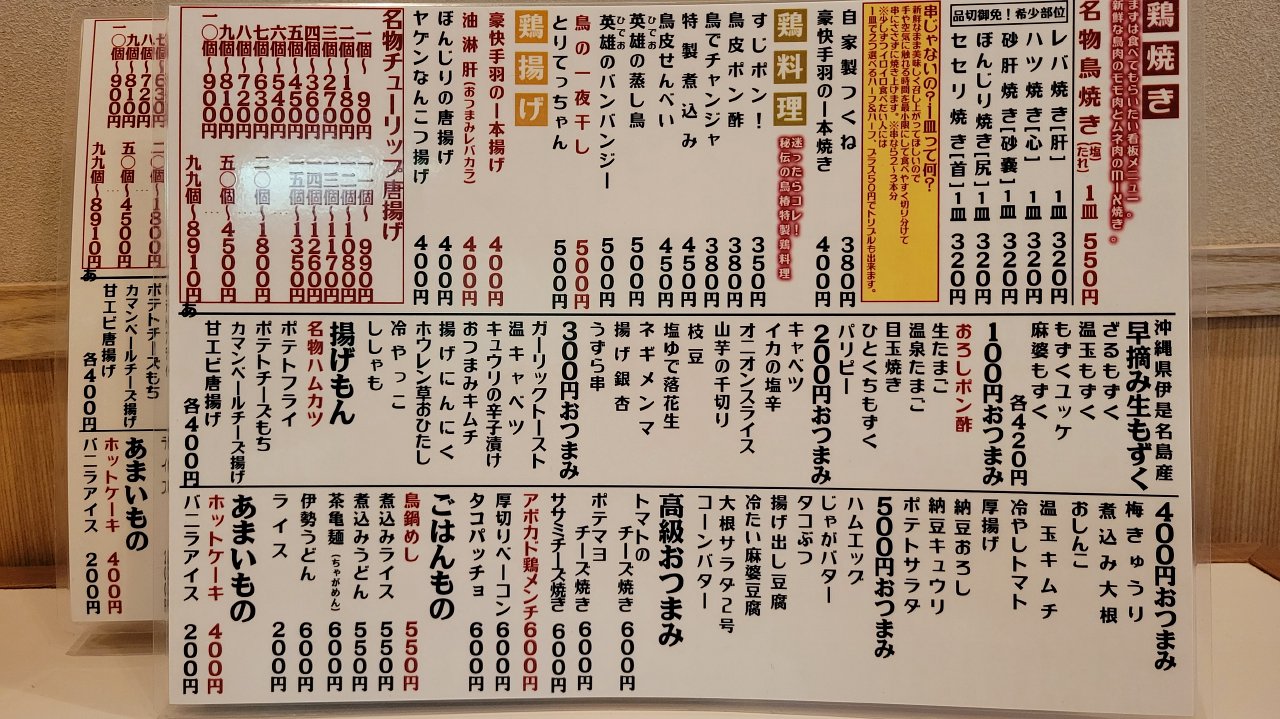 鶏焼き
まずは食べてもらいたい看板メニュー。
新鮮な鳥肉のモモ肉とムネ肉のMIX焼き。
名物鳥焼き(塩)(たれ) 1皿 550円
品切御免!希少部位
レバ焼き[肝] 1皿 320円
ハツ焼き[心] 1皿 320円
砂肝焼き[砂嚢] 1皿 320円
ぼんじり焼き[尻] 1皿 320円
セセリ焼き[首] 1皿 320円
串じゃないの?一皿って何?
新鮮なまま美味しく召し上がってほしいので
手や空気に触れる時間を最小限にして食べやすく切り分けて
串にささずに焼き上げます。※串なら2〜3本分
※少しずつイロイロ食べたい人には
1皿で2つ選べるハーフ&ハーフ プラス50円でトリプルも出来ます。
自家製つくね 380円
豪快手羽の一本焼き 400円
鶏料理
迷ったらコレ!
秘伝の鳥椿特製鶏料理
すじポン! 350円
鳥皮ポン酢 380円
鳥でチャンジャ 380円
特製煮込み 450円
鳥皮せんべい 450円
英雄の蒸し鳥 500円
ひでお
英雄のバンバンジー 500円
ひでお
鳥の一夜干し 500円
とりてっちゃん 500円
鶏揚げ
豪快手羽の一本揚げ 400円
油淋肝(おつまみレバカラ) 400円
ぼんじりの唐揚げ 400円
ヤゲンなんこつ揚げ 400円
名物チューリップ唐揚げ
一個〜90円
二個〜180円
三個〜270円
四個〜360円
五個〜450円
六個〜540円
七個〜630円
八個〜720円
九個〜810円
一〇個〜900円
一一個〜990円
一二個〜1080円
一三個〜1170円
一四個〜1260円
一五個〜1350円
二〇個〜1800円
五〇個〜4500円
九九個〜8910円
沖縄県伊是名島産
早摘み生もずく
ざるもずく
温玉もずく
もずくユッケ
麻婆もずく
各420円
100円おつまみ
おろしポン酢
生たまご
温泉たまご
目玉焼き
ひとくちもずく
パリピー
200円おつまみ
キャベツ
イカの塩辛
オニオンスライス
山芋の千切り
枝豆
塩ゆで落花生
ネギメンマ
揚げ銀杏
うずら串
300円おつまみ
ガーリックトースト
温キャベツ
キュウリの辛子漬け
おつまみキムチ
揚げにんにく
ホウレン草おひたし
冷やっこ
ししゃも
揚げもん
名物ハムカツ
ポテトフライ
ポテトチーズもち
カマンベールチーズ揚げ
甘エビ唐揚げ
各400円
400円おつまみ
梅きゅうり
煮込み大根
おしんこ
温玉キムチ
冷やしトマト
厚揚げ
納豆おろし
納豆キュウリ
ポテトサラダ
500円おつまみ
ハムエッグ
じゃがバター
タコぶつ
揚げ出し豆腐
冷たい麻婆豆腐
大根サラダ2号
コーンバター
高級おつまみ
トマトの
チーズ焼き 600円
ポテマヨ
チーズ焼き 600円
ササミチーズ焼き 600円
アボカド鶏メンチ 600円
厚切りベーコン 600円
タコパッチョ 600円
ごはんもの
鳥鍋めし 550円
煮込みライス 550円
煮込みうどん 550円
茶亀麺(ちゃがめん) 600円
伊勢うどん 600円
ライス 200円
あまいもの
ホットケーキ 400円
バニラアイス 200円
七個〜630円
八個〜720円
九個〜810円
一〇個〜900円
二〇個〜1800円
五〇個〜4500円
九九個〜8910円
ポテトチーズもち
カマンベールチーズ揚げ
甘エビ唐揚げ
各400円
あまいもの
ホットケーキ 400円
バニラアイス 200円